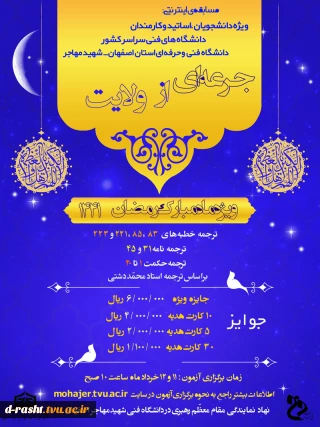 مسابقه‌ی اینترنتی:
ویژه دانشجویان، اساتید و کارمندان
دانشگاه های فنی سراسر کشور
دانشگاه فنی و حرفه‌ای استان اصفهان_شهید مهاجر
جرعه‌ای از ولایت
ویژه ماه مبارک رمضان ۱۴۴۱
ترجمه خطبه‌های ۸۳، ۸۵، ۲۲۱ و ۲۲۳
ترجمه نامه ۳۱ و ۴۵
ترجمه حکمت ۱ تا ۲۰
براساس ترجمه استاد محمد دشتی
جوایز
جایزه ویژه ۶/۰۰۰/۰۰۰ ریال
۱۰ کارت هدیه ۴/۰۰۰/۰۰۰ ریال
۵ کارت هدیه ۲/۰۰۰/۰۰۰ ریال
۳۰ کارت هدیه ۱/۱۰۰/۰۰۰ ریال
زمان برگزاری آزمون: ۱۱ و ۱۲ خرداد ماه ساعت ۱۰ صبح
اطلاعات بیشتر راجع به نحوه برگزاری آزمون در سایت mohajer.tvu.ac.ir
نهاد نمایندگی مقام معظّم رهبری در دانشگاه فنی شهید مهاجر
d-rasht.tvu.ac.ir